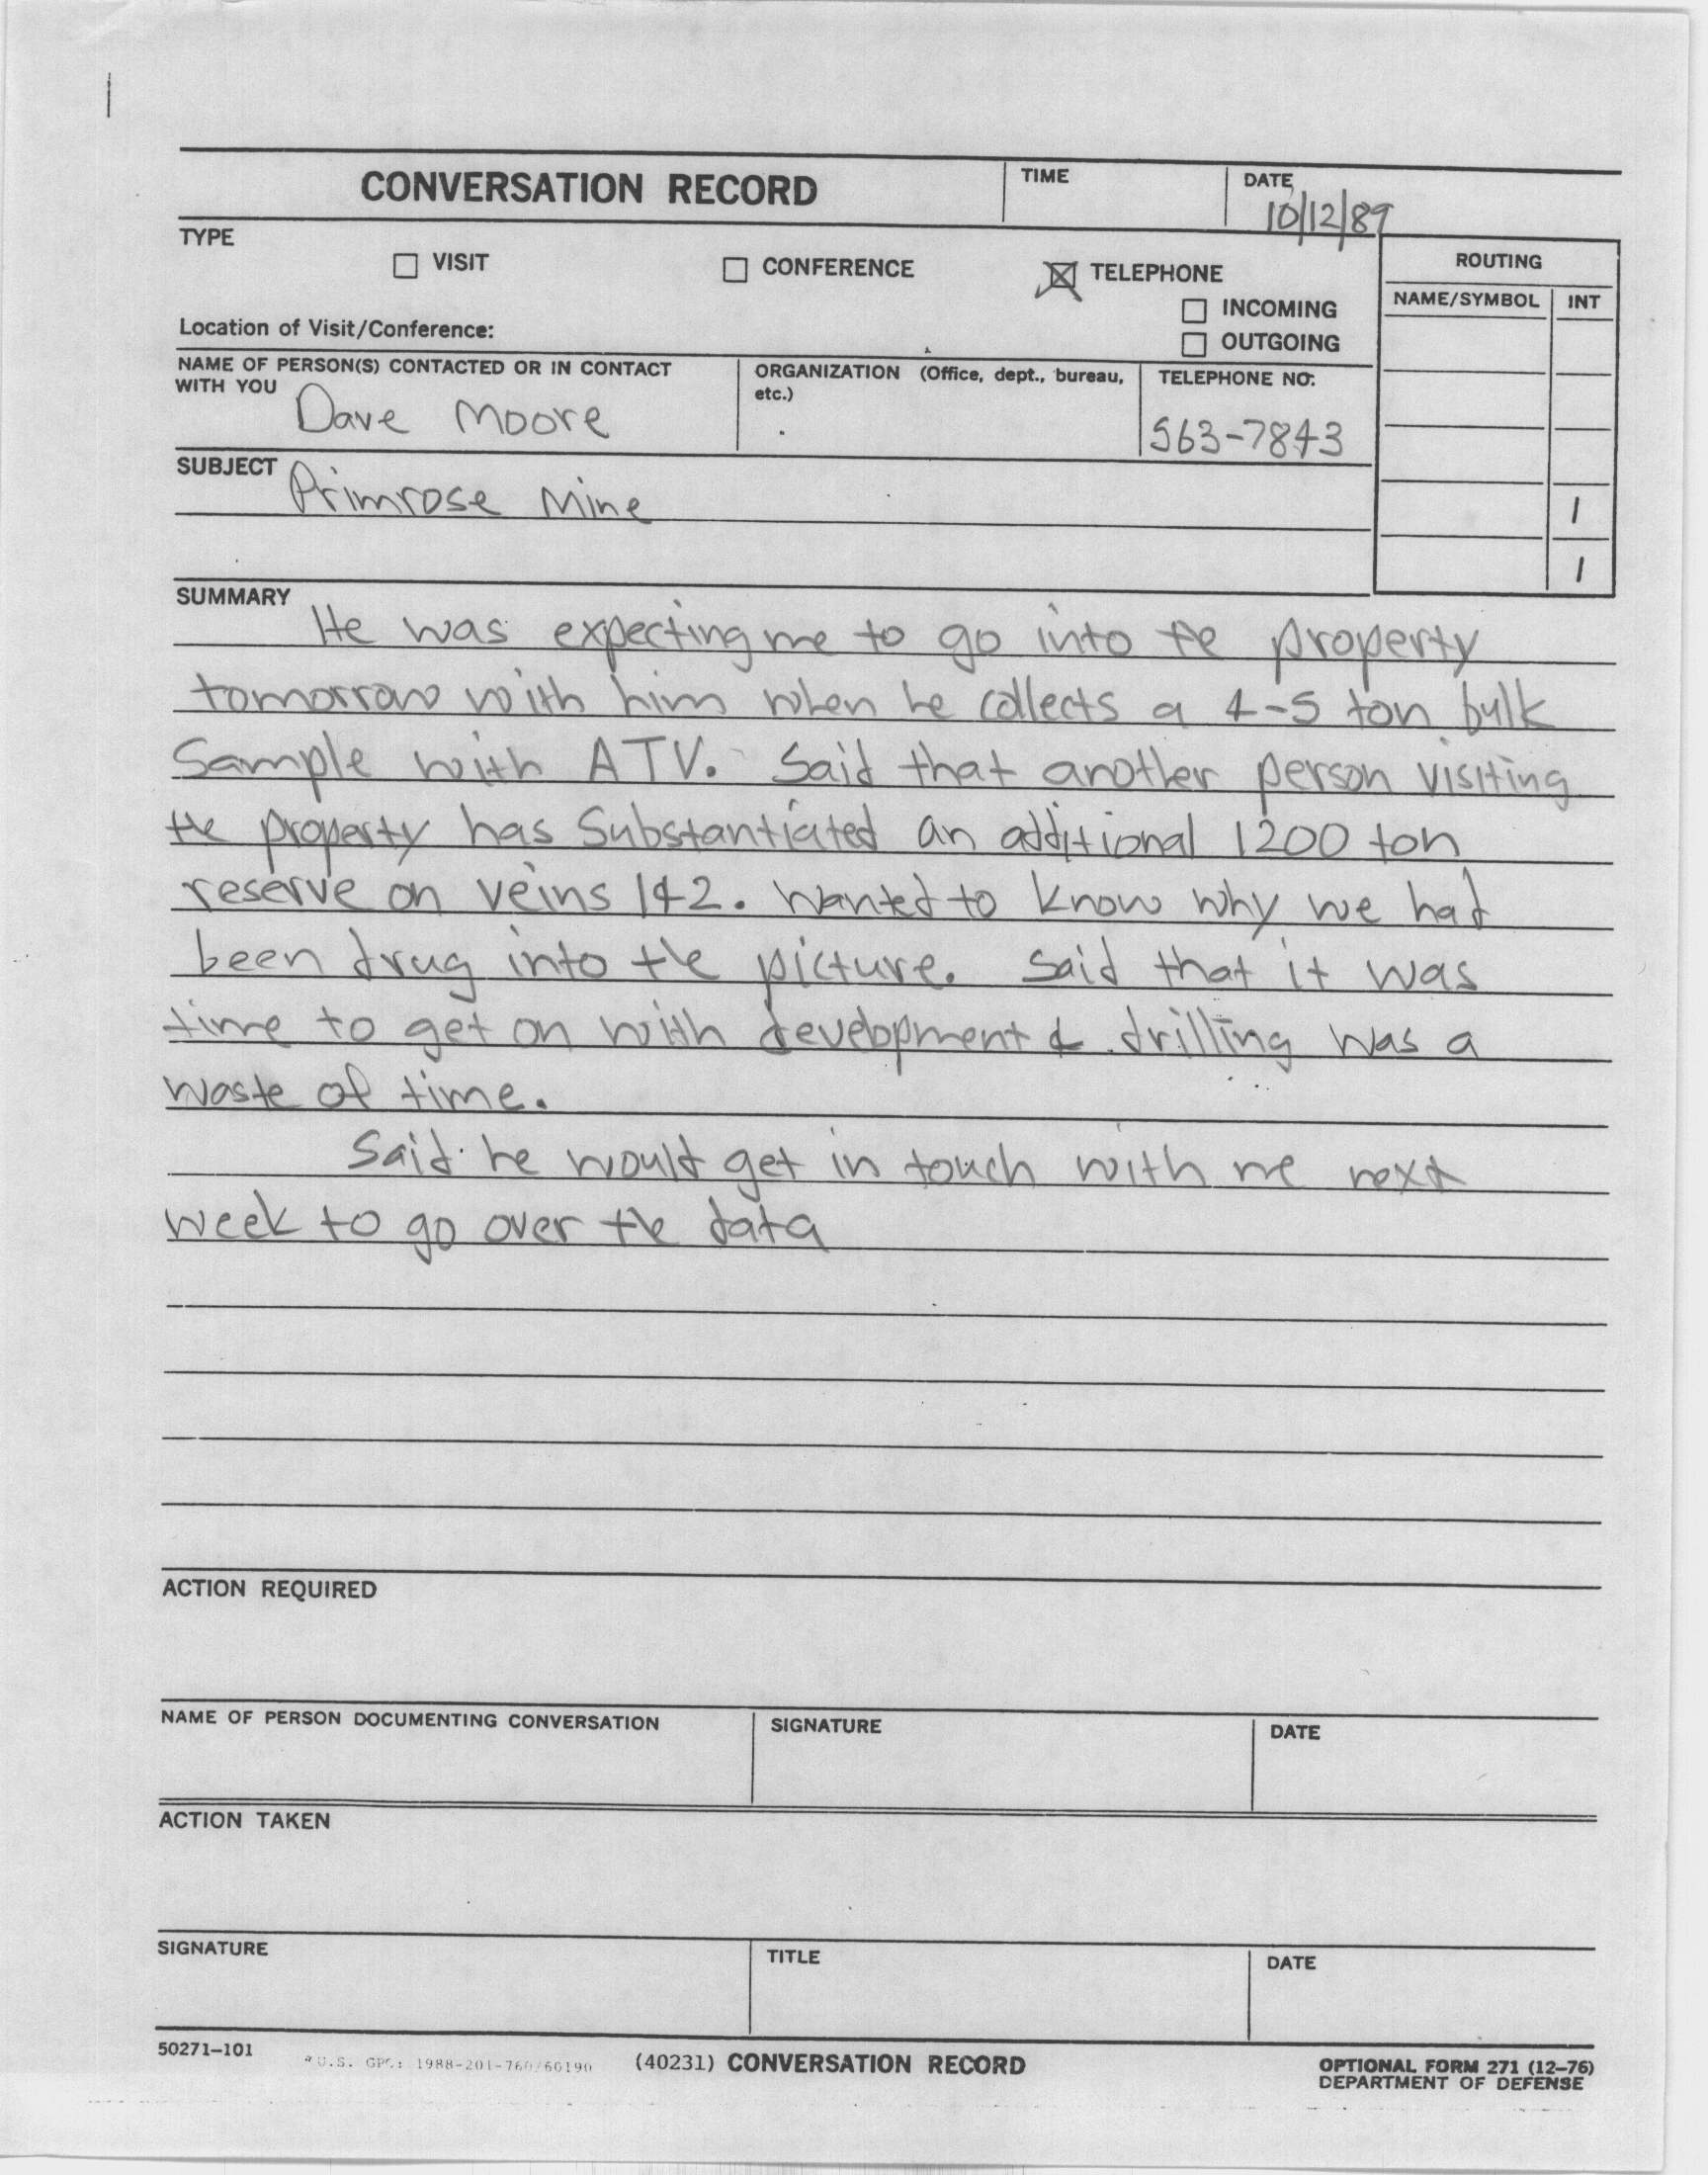 CONVERSATION RECORD
TIME
DATE
10/12/89
TYPE
VISIT
CONFERENCE
TELEPHONE
INCOMING
OUTGOING
ROUTING
NAME/SYMBOL INT
Location of Visit/Conference:
NAME OF PERSON(S) CONTACTED OR IN CONTACT
WITH YOU
Dave Moore
ORGANIZATION (Office, dept., bureau,
etc.)
TELEPHONE NO:
563-7843
SUBJECT
Primrose Mine
SUMMARY
He was expecting me to go into the property
tomorrow with him when he collects a 4-5 ton bulk
Sample with ATV. Said that another person visiting
the property has Substantiated an additional 1200 ton
reserve on veins 1&2. Wanted to know why we had
been drug into the picture. Said that it was
time to get on with development & drilling was a
waste of time.
Said he would get in touch with me next
week to go over the data
ACTION REQUIRED
NAME OF PERSON DOCUMENTING CONVERSATION
SIGNATURE
DATE
ACTION TAKEN
SIGNATURE
TITLE
DATE
50271-101
*U.S. GPO: 1988-201-760/60190
(40231) CONVERSATION RECORD
OPTIONAL FORM 271 (12-76)
DEPARTMENT OF DEFENSE